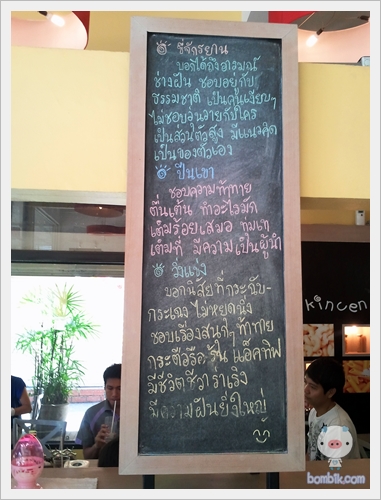 ขี่จักรยาน
บอกได้ถึงอารมณ์
ช่างฝัน ชอบอยู่กับ
ธรรมชาติ เป็นคนเงียบๆ
ไม่ชอบวุ่นวายกับใคร
เป็นส่วนตัวสูง มีแนวคิด
เป็นของตัวเอง
ปีนเขา
ชอบความท้าทาย
ตื่นเต้น ทำอะไรมัก
เต็มร้อยเสมอ ทุ่มเท
เต็มที่ มีความเป็นผู้นำ
วิ่งแข่ง
บอกนิสัยที่กระฉับ-
กระเฉง ไม่หยุดนิ่ง
ชอบเรื่องสนุกๆ ท้าทาย
กระตือรือร้น แอ็คทิฟ
มีชีวิตชีวา ร่าเริง
มีความฝันยิ่งใหญ่
bomblk.com